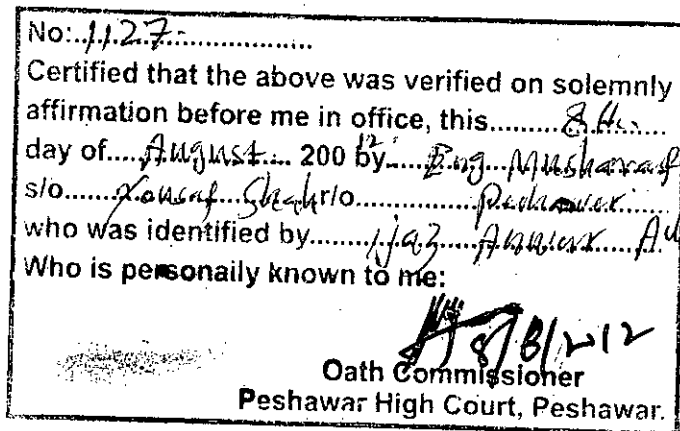 No:..1127.....................
Certified that the above was verified on solemnly
affirmation before me in office, this..........8th......
day of.....August.... 200 12 by.....Eng. Musharaf
s/o.......Yousaf...Shah r/o...............Peshawar.......
who was identified by........Ijaz.....Anwar....Ad
Who is personaily known to me:
8/8/2012
Oath Commissioner
Peshawar High Court, Peshawar.